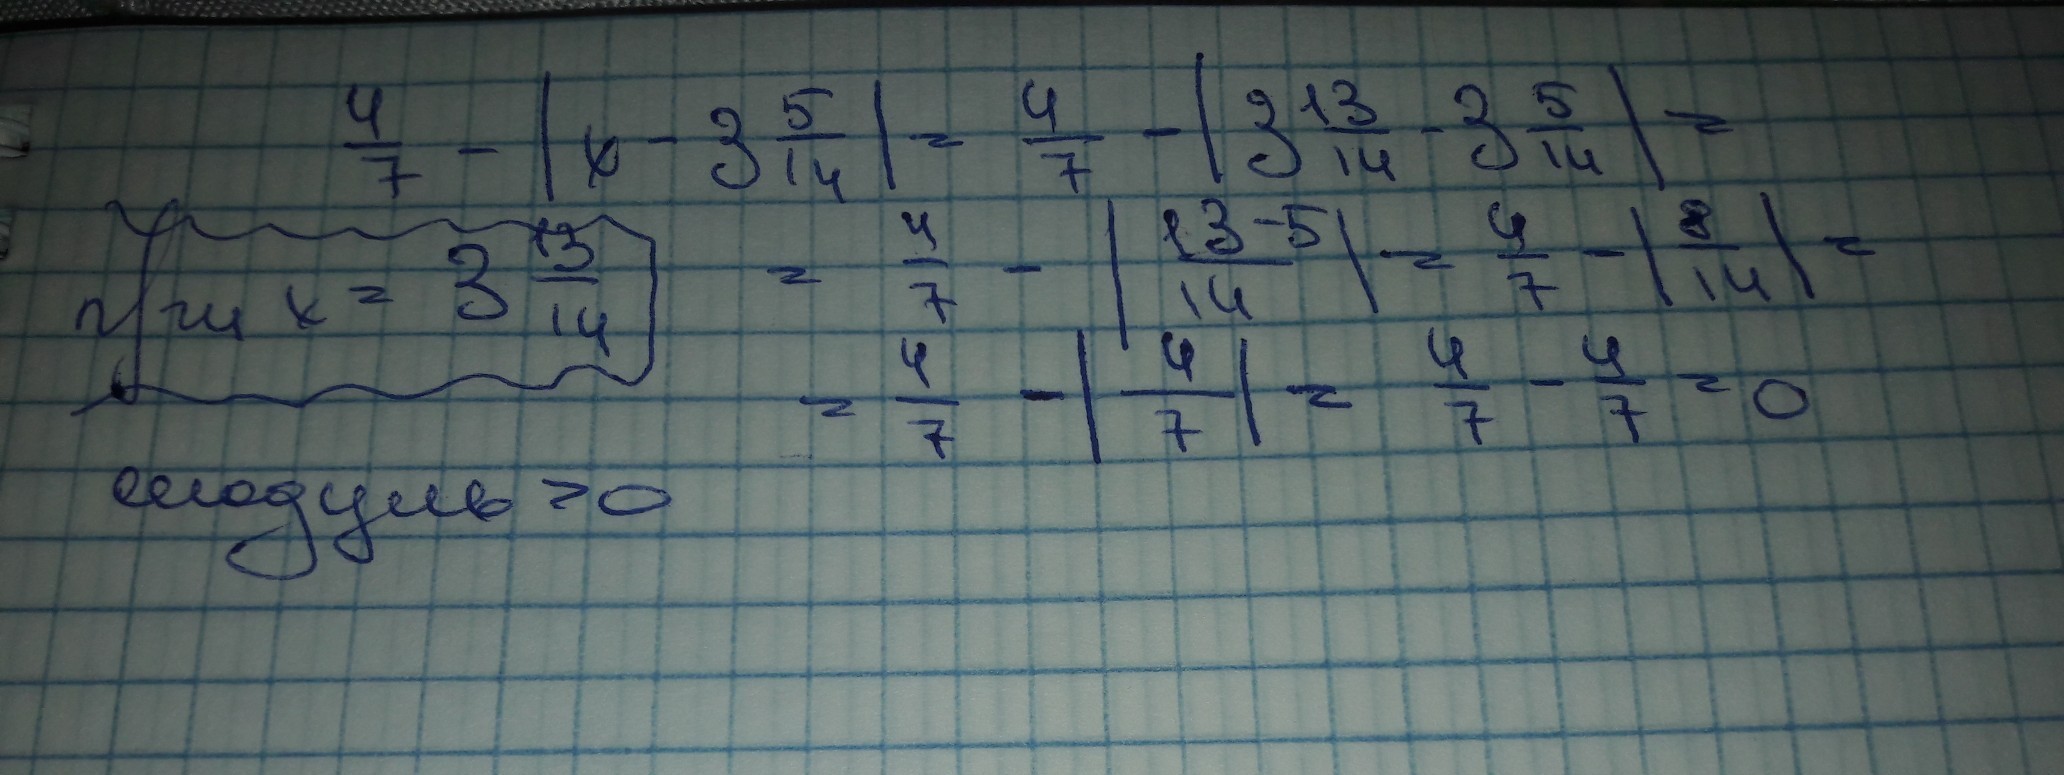 4/7 - | x - 3 5/14 | = 4/7 - | 3 13/14 - 3 5/14 | =
при x = 3 13/14
= 4/7 - | 13-5/14 | = 4/7 - | 8/14 | =
= 4/7 - | 4/7 | = 4/7 - 4/7 = 0
модуль > 0